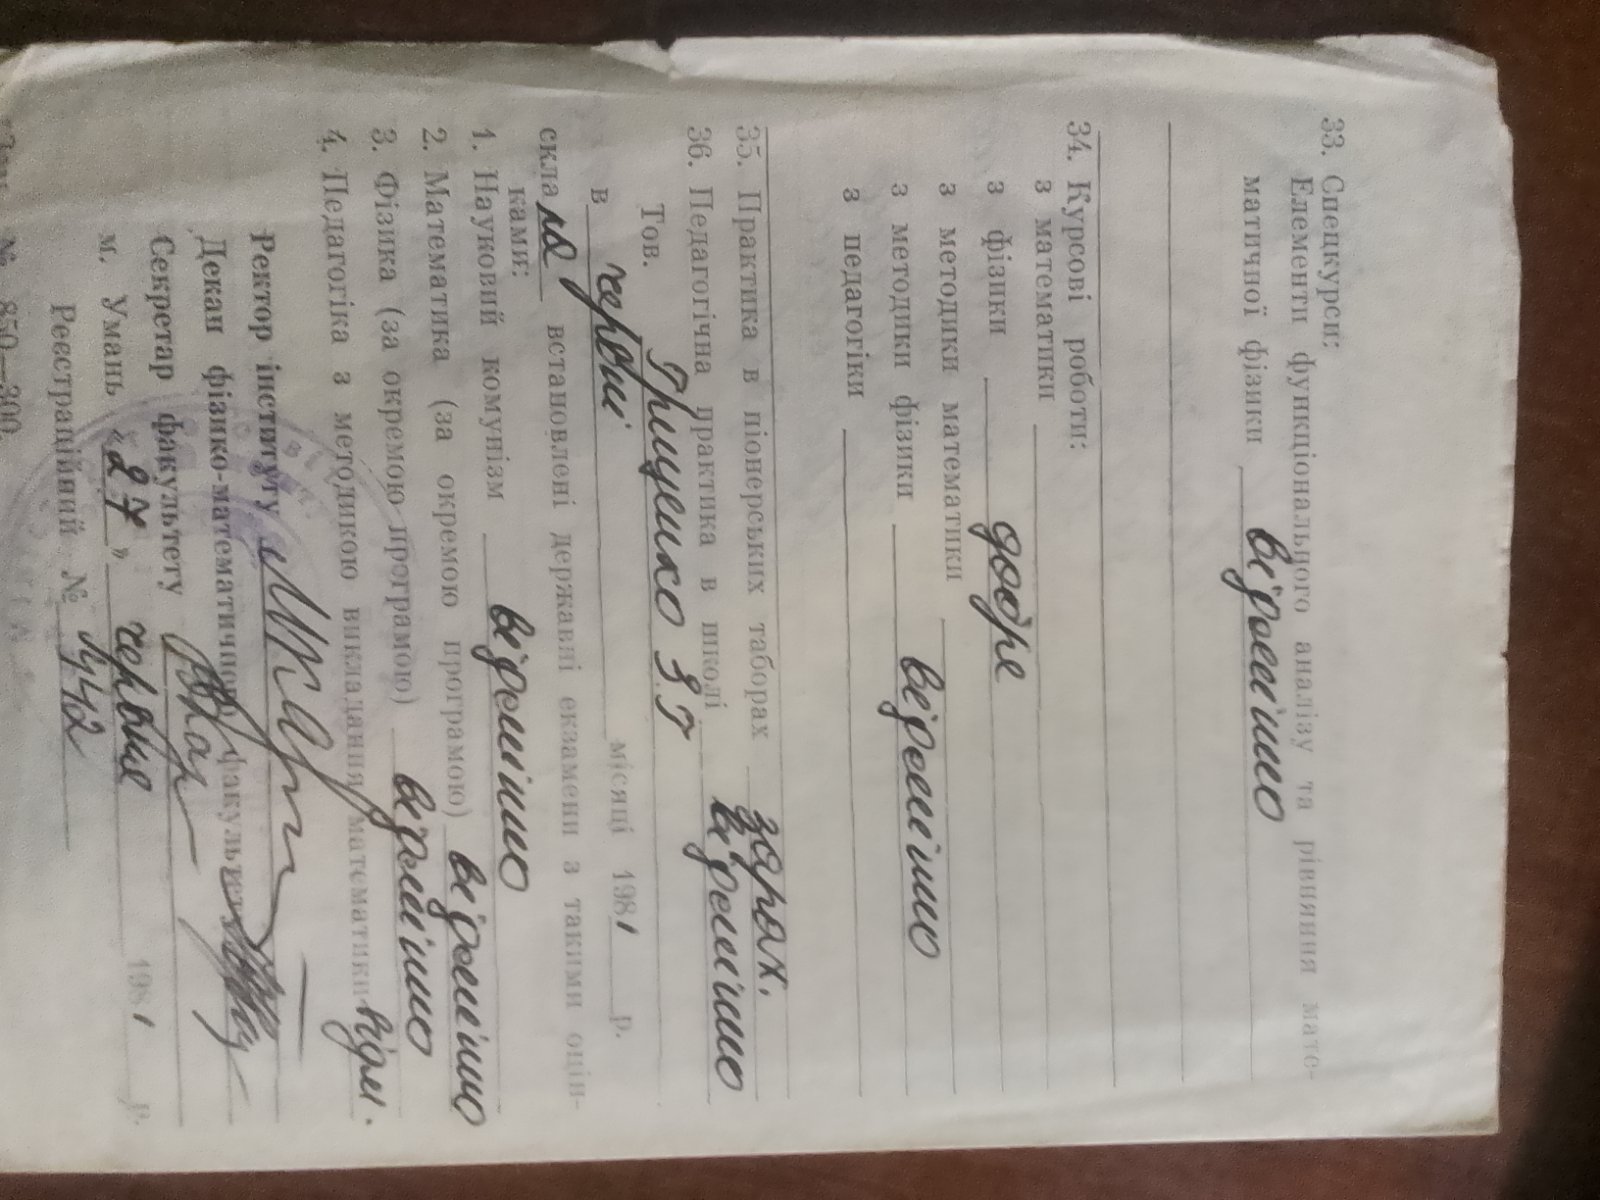 33. Спецкурси:
Елементи функціонального аналізу та рівняння мате-
матичної фізики відмінно
34. Курсові роботи:
з математики
з фізики добре
з методики математики
з методики фізики відмінно
з педагогіки
35. Практика в піонерських таборах зарах.
36. Педагогічна практика в школі відмінно
Тов. Грищенко З.
в червні місяці 1981 р.
склала встановлені державні екзамени з такими оцін-
ками:
1. Науковий комунізм відмінно
2. Математика (за окремою програмою) відмінно
3. Фізика (за окремою програмою) відмінно
4. Педагогіка з методикою викладання математики відм.
Ректор інституту
Декан фізико-математичного факультету
Секретар факультету
м. Умань „27" червня 1981 р.
Реєстраційний №
№ 850—300